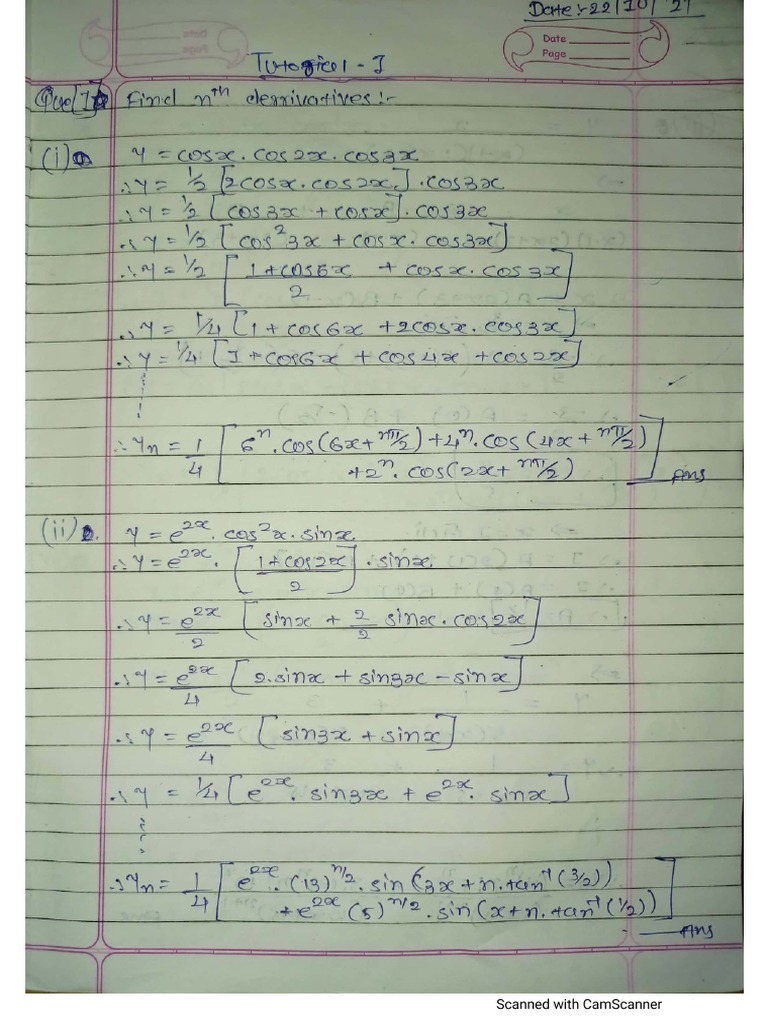 Date:-22/10/21
Date
Page
Tutorial-I
Que[1] Find nth derrivatives:-
(i) y = cosx·cos2x·cos3x
∴y = 1/2 [2cosx·cos2x.]·cos3x
∴y = 1/2 [cos3x + cosx]·cos3x
∴y = 1/2 [cos²3x + cosx·cos3x]
∴y = 1/2 [(1+cos6x)/2 + cosx·cos3x]
∴y = 1/4 [1 + cos6x + 2cosx·cos3x]
∴y = 1/4 [1 + cos6x + cos4x + cos2x]
∴yn = 1/4 [6^n·cos(6x+nπ/2) + 4^n·cos(4x+nπ/2)
+2^n·cos(2x+nπ/2)] — Ans
(ii) y = e^2x·cos²x·sinx
∴y = e^2x·[(1+cos2x)/2]·sinx
∴y = e^2x/2 [sinx + 2/2 sinx·cos2x]
∴y = e^2x/4 [2·sinx + sin3x - sinx]
∴y = e^2x/4 [sin3x + sinx]
∴y = 1/4 [e^2x·sin3x + e^2x·sinx]
∴yn = 1/4 [e^2x·(13)^n/2·sin(3x+n·tan⁻¹(3/2))
+ e^2x (5)^n/2·sin(x+n·tan⁻¹(1/2))]
— Ans
Scanned with CamScanner